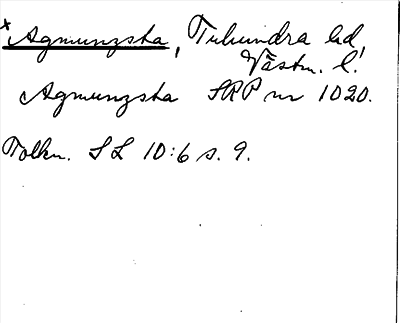 x Agmunzsta, Tuhundra hd,
Västm. l.
Agmunzsta SRP nr 1020.
Tolkn. SL 10:6 s. 9.